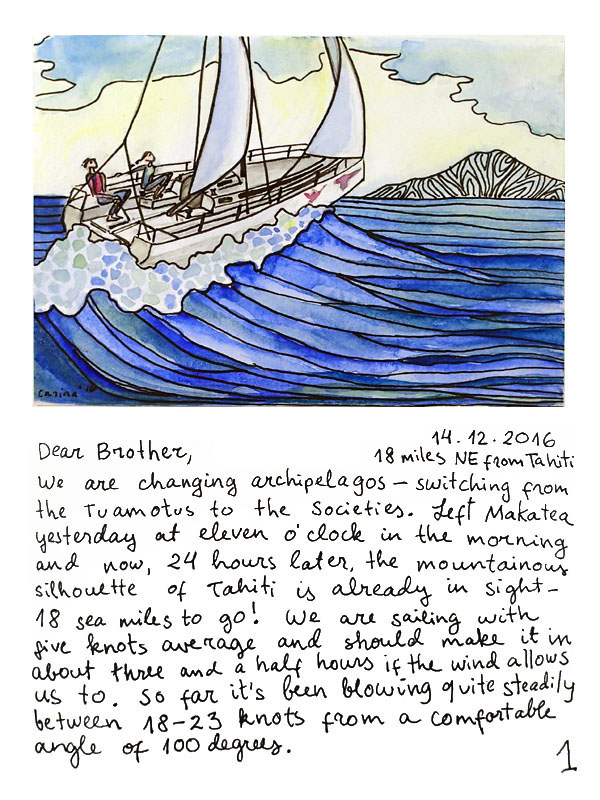 Carina '16
14.12.2016
Dear Brother,
18 miles NE from Tahiti
We are changing archipelagos – switching from
the Tuamotus to the Societies. Left Makatea
yesterday at eleven o'clock in the morning
and now, 24 hours later, the mountainous
silhouette of Tahiti is already in sight –
18 sea miles to go! We are sailing with
five knots average and should make it in
about three and a half hours if the wind allows
us to. So far it's been blowing quite steadily
between 18–23 knots from a comfortable
angle of 100 degrees.
1